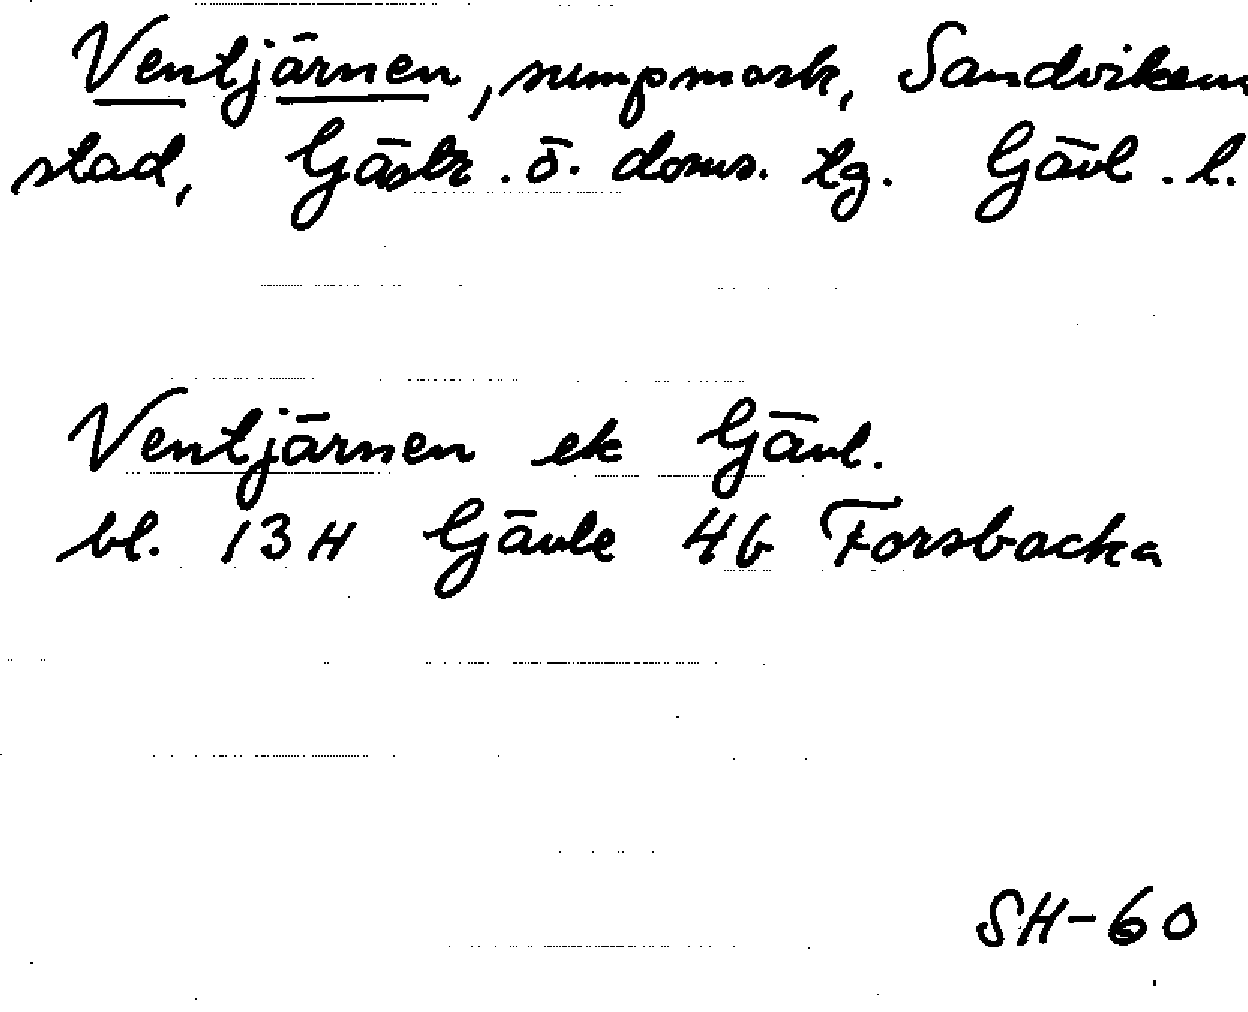 Ventjärnen, sumpmark, Sandvikens
stad, Gästr. ö. doms. tg. Gävl. l.
Ventjärnen ek Gävl.
bl. 13H Gävle 4b Forsbacka
SH-60